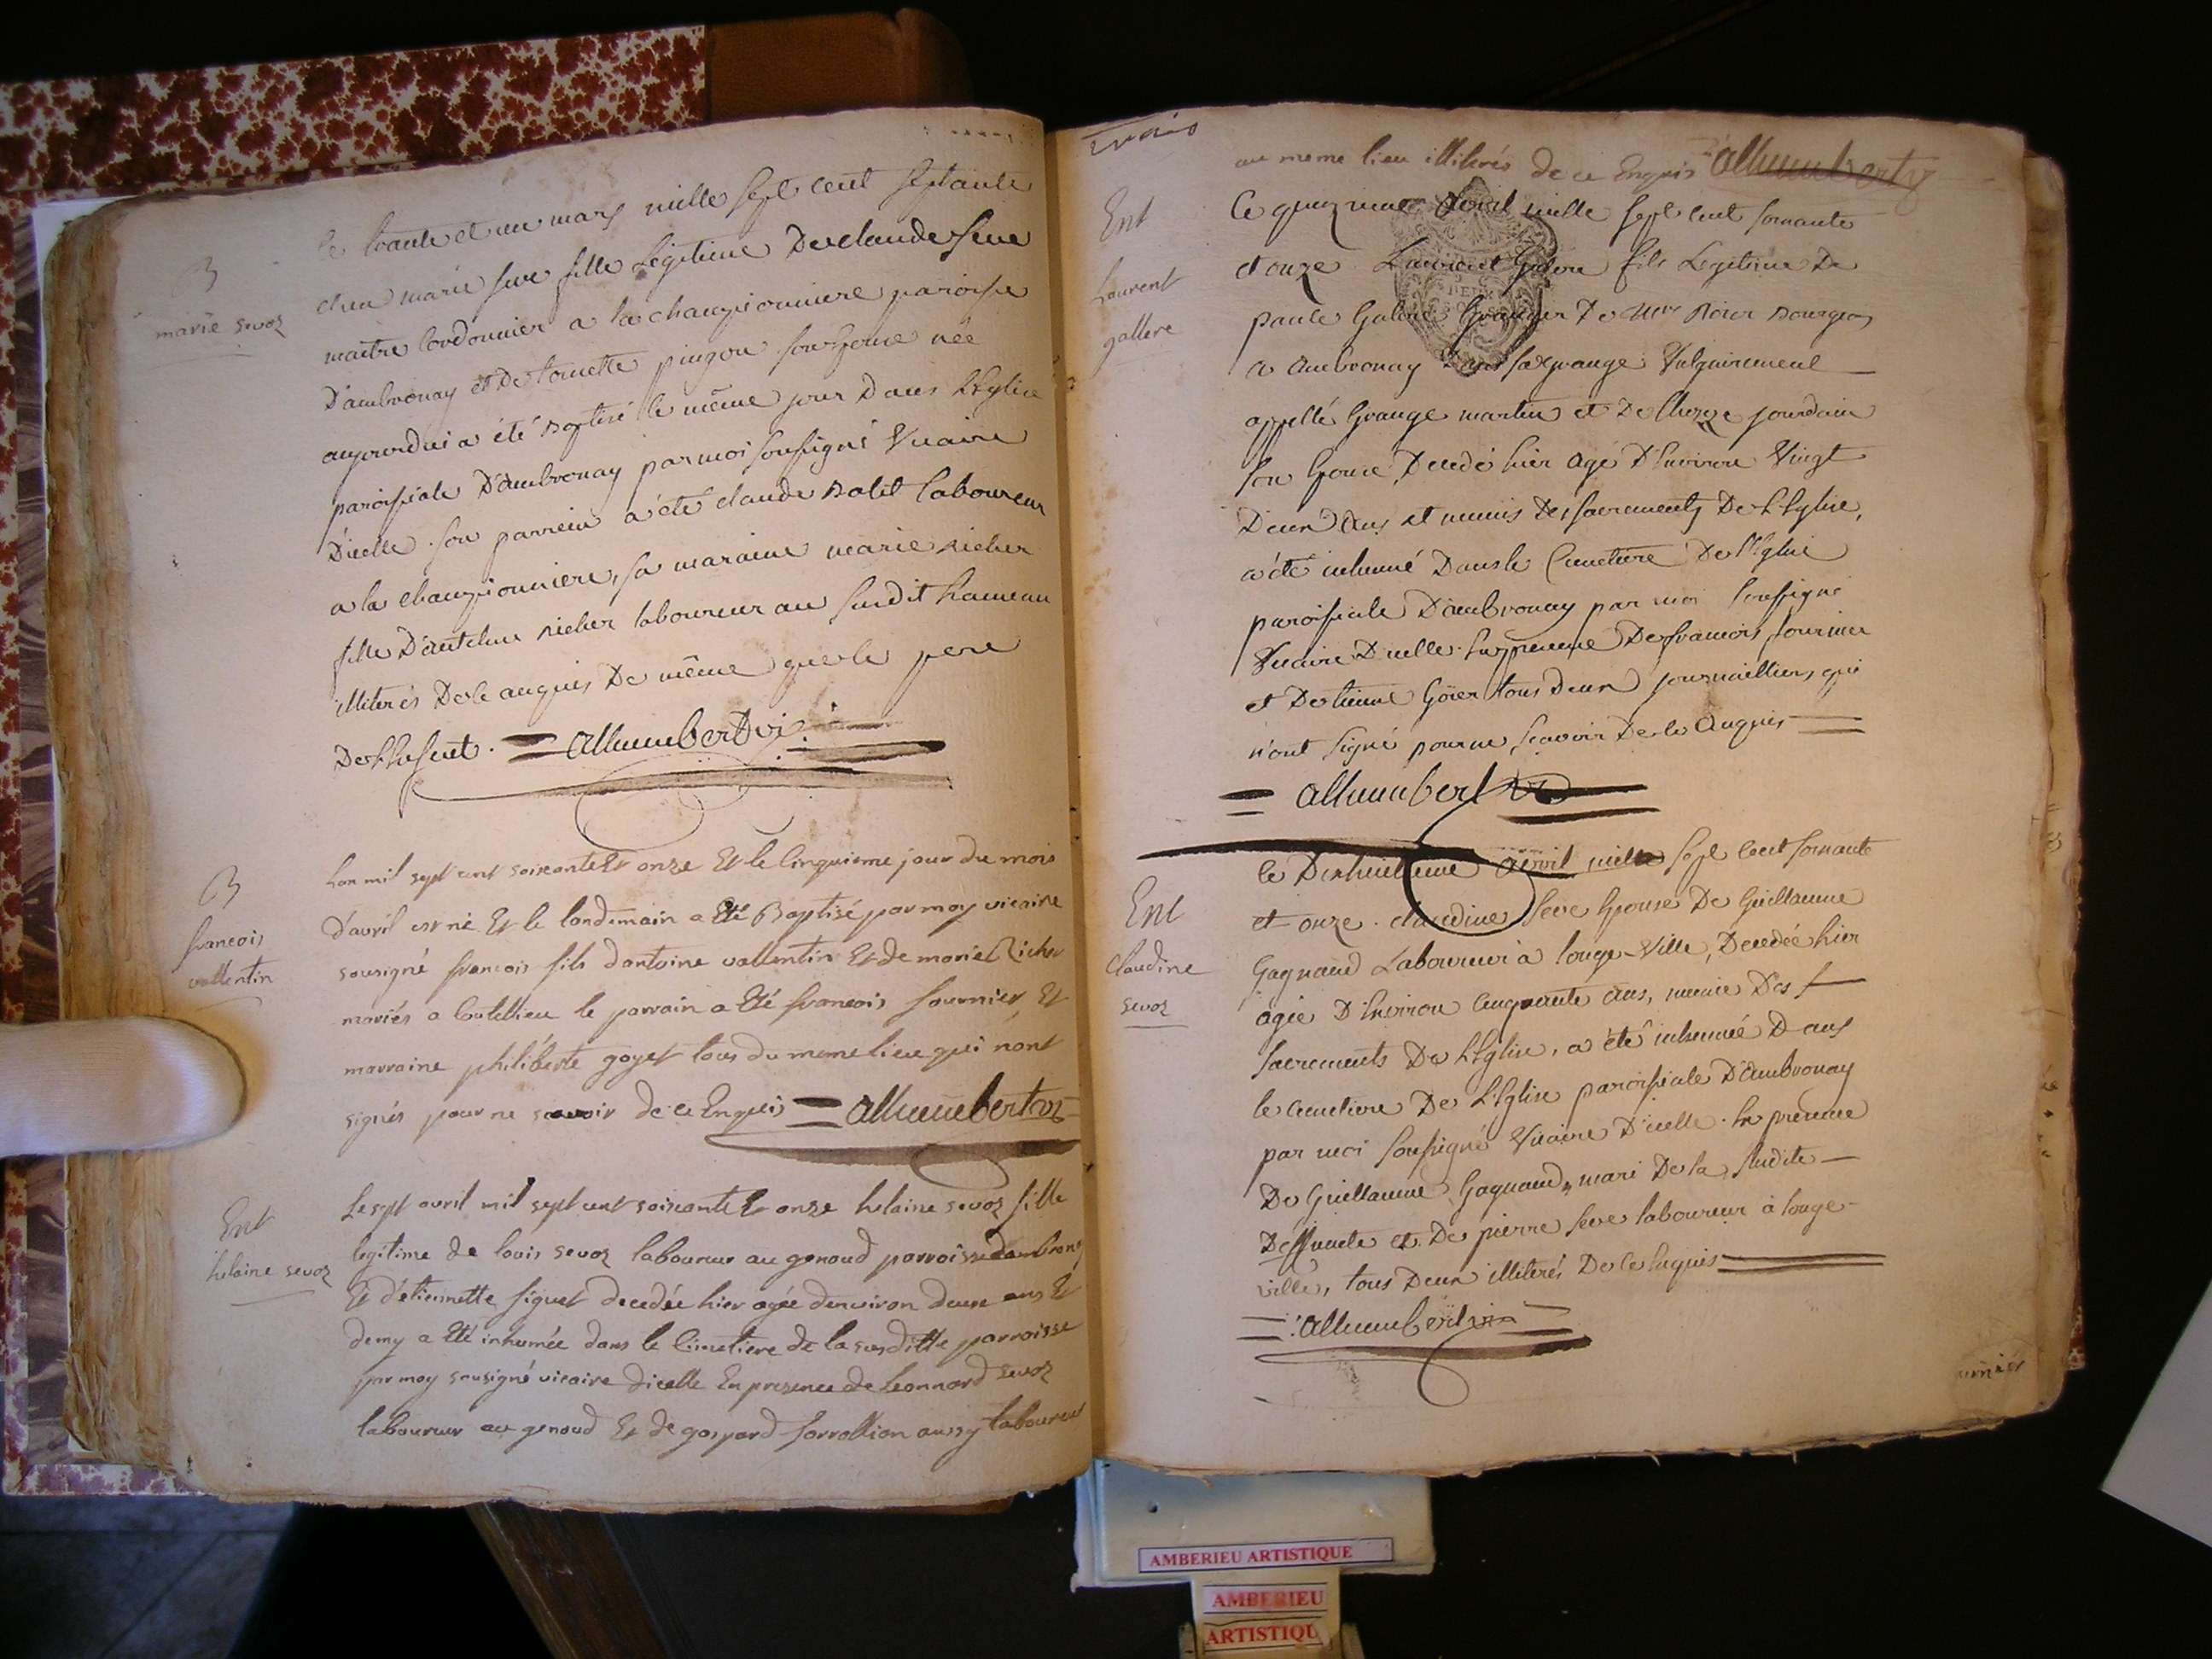 B
marie sevoz
le trante et un mars mille sept cent septante
et un marie seve fille Légitime De claude seve
maitre Cordonnier a la championniere paroisse
D'ambronay et De tomette pingon son épouse née
aujourdui a été baptisé le même jour Dans L'Eglise
paroissiale D'ambronay par moi soussigné Vicaire
D'icelle. son parrein a été claude Balit laboureur
a la championniere, sa maraine marie Richer
fille D'antelme richer laboureur au susdit hameau
illiterés De ce anquis De même que le pere
De L'Enfent. allhumbert vi.
B
francois
vallentin
Lan mil sept cent soixante Et onze Et le Cinquieme jour du mois
d'avril est né Et le landemain a Eté Baptisé par moy vicaire
sousigné francois fils d'antoine vallentin Et de marie Richer
mariés a Coutelieu le parrain a Eté francois fournier, Et
marraine philiberte goyet tous du meme lieu qui n'ont
signés pour ne scavoir de ce Enquis allhumbert vi
Ent
helaine sevoz
Le sept avril mil sept cent soixante Et onze helaine sevoz fille
legitime de louis sevoz laboureur au genoud parroisse dambronay
Et d'étiennette siguet decedée hier agée denviron deux ans Et
demy a Eté inhumée dans le Cimetiere de la susditte parroisse
par moy sousigné vicaire dicelle En presence de leonnard sevoz
laboureur au genoud Et de gaspard forrollion aussy laboureur
au meme lieu illiterés de ce Enquis allhumbert vi
Ent
Laurent
gallere
Le quinzieme Avril mille sept cent soixante
et onze Laurent Galere fils Legitime De
paule Galere Granger De Mre Bourgeois
a Ambronay Dans sa grange Vulguirement
appellé Grange martin et De jourdain
son Epouse, Decedé hier agé D'Environ Vingt
Deux Ans et munis Des sacrements De L'Eglise,
a été inhumé Dans le Cimetiere De l'Eglise
paroissiale D'ambronay par moi soussigné
Vicaire D'icelle. En presence De francois fournier
et D'etienne Goier tous Deux journailliers qui
n'ont signé pour ne scavoir De ce Anquis
allhumbert vi
Ent
Claudine
sevoz
le Dixhuitieme avril mille sept cent soixante
et onze. claudine seve Epouse De Guillaume
Gagnaud Laboureur à longe-Ville, Decedée hier
agée D'Environ cinquante ans, munie Des
sacrements De L'Eglise, a été inhumée Dans
le cimetiere De L'Eglise paroissiale D'ambronay
par moi soussigné Vicaire D'icelle. En presence
De Guillaume Gagnaud, mari De la susdite
Deffuncte et De pierre seve laboureur à longe-
ville, tous Deux illiterés De ce Enquis
allhumbert vi
AMBERIEU ARTISTIQUE
AMBERIEU
ARTISTIQU